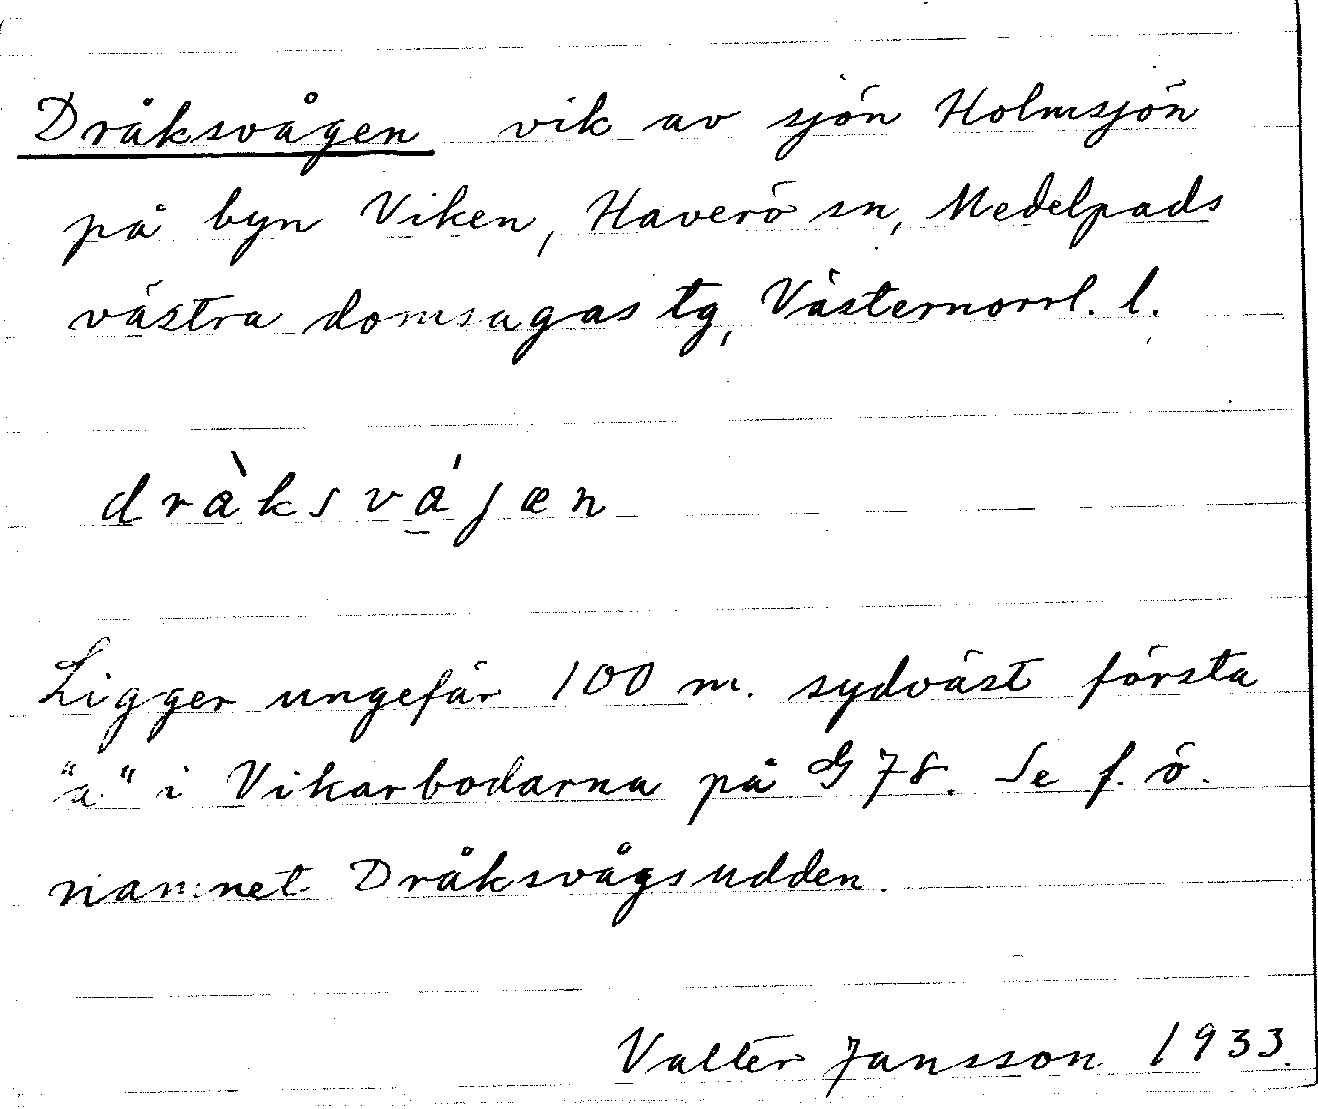 Dråksvågen vik av sjön Holmsjön
på byn Viken, Haverö sn, Medelpads
västra domsagas tg, Västernorrl. l.
dràksvájæn
Ligger ungefär 100 m. sydväst första
"a" i Vikarbodarna på G 78. Se f. ö.
namnet Dråksvågsudden.
Valter Jansson 1933.